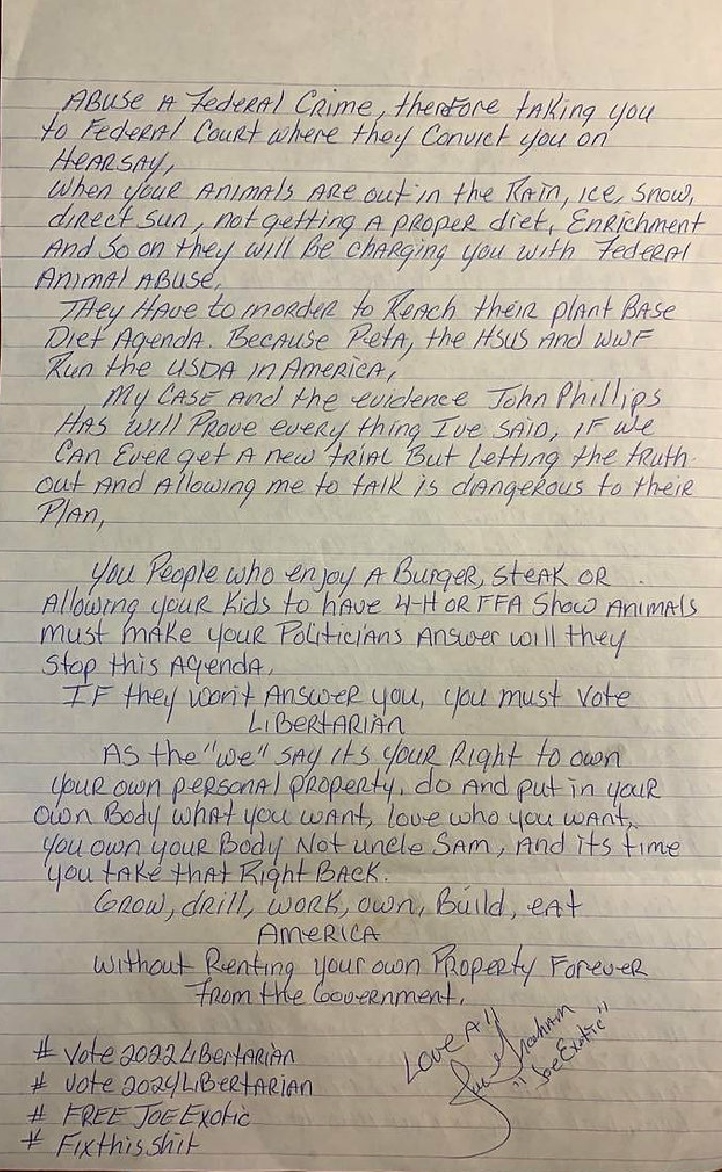 ABUSE A Federal Crime, therefore taking you
to Federal Court where they Convict you on
HEARSAY,
When your ANIMALS ARE out in the RAIN, ice, snow,
direct sun, not getting A proper diet, Enrichment
And So on they will Be charging you with Federal
Animal ABUSE,
THEY HAVE to inorder to Reach their plant BASE
Diet Agenda. Because PetA, the HSUS And WWF
Run the USDA in America,
My CASE And the evidence John Phillips
HAS will Prove every thing Ive SAID, IF we
CAN Ever get A new trial But Letting the truth
out And Allowing me to talk is dangerous to their
Plan,
You People who enjoy A Burger, steak OR
Allowing your Kids to have 4-H OR FFA Show Animals
must make your Politicians Answer will they
Stop this Agenda,
IF they won't Answer you, you must vote
LiBERTARIAN
As the "we" SAY its your Right to own
your own personal property, do And put in your
own Body what you want, love who you want,
you own your Body Not uncle SAM, And its time
you take that Right BACK.
Grow, drill, work, own, Build, eat
AMERICA
without Renting your own Property Forever
From the Government.
Love All
"Joe Exotic"
# Vote 2022 LiBertarian
# vote 2024 LiBERTARIAN
# FREE JOE Exotic
# Fixthisshit